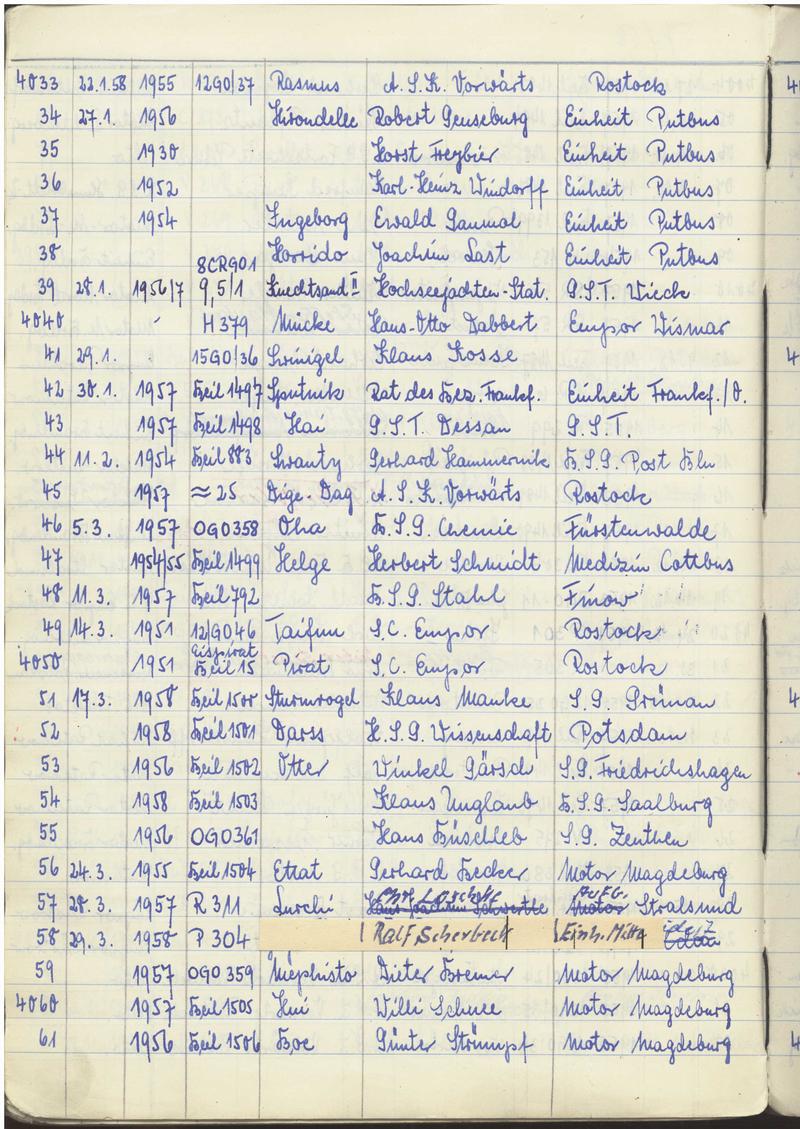 4033 22.1.58 1955 12GO/37 Rasmus A.S.K. Vorwärts Rostock
34 27.1. 1956 Hirondelle Robert Genseburg Einheit Putbus
35 1930 Horst Freybier Einheit Putbus
36 1952 Karl-Heinz Windorff Einheit Putbus
37 1954 Ingeborg Ewald Einheit Putbus
38 Horrido Joachim Last Einheit Putbus
8CRG01
39 28.1. 1956/7 9,5/1 Knechtsand II Hochseejachten-Stat. G.S.T. Wieck
4040 H379 Mücke Hans-Otto Dabbert Empor Wismar
41 29.1. 15GO/36 Swinigel Klaus Kosse
42 30.1. 1957 Beil 1497 Sputnik Rat des Bez. Frankf. Einheit Frankf./O.
43 1957 Beil 1498 Hai G.S.T. Dessau G.S.T.
44 11.2. 1954 Beil 883 Swanty Gerhard Hammernik B.S.G. Post Bln
45 1957 ≈25 Dige-Dag A.S.K. Vorwärts Rostock
46 5.3. 1957 OGO358 Oha B.S.G. Chemie Fürstenwalde
47 1954/55 Beil 1499 Helge Herbert Schmidt Medizin Cottbus
48 11.3. 1957 Beil 792 B.S.G. Stahl Finow
49 14.3. 1951 12/GO46 Taifun S.C. Empor Rostock
Eispirat
4050 1951 Beil 15 Pirat S.C. Empor Rostock
51 17.3. 1958 Beil 1500 Sturmvogel Klaus Manke S.G. Grünau
52 1958 Beil 1501 Darss H.S.G. Wissenschaft Potsdam
53 1956 Beil 1502 Otter Winkel Gärsch S.G. Friedrichshagen
54 1958 Beil 1503 Klaus Unglaub B.S.G. Saalburg
55 1956 OGO361 Hans Büschleb S.G. Zeuthen
56 24.3. 1955 Beil 1504 Etzat Gerhard Becker Motor Magdeburg
57 28.3. 1957 R311 Lurchi Motor Stralsund
58 29.3. 1958 P304 Ralf Scherbeck Einh. Mitte
59 1957 OGO359 Mephisto Dieter Bremer Motor Magdeburg
4060 1957 Beil 1505 Hui Willi Schnee Motor Magdeburg
61 1956 Beil 1506 Boe Günter Strümpf Motor Magdeburg